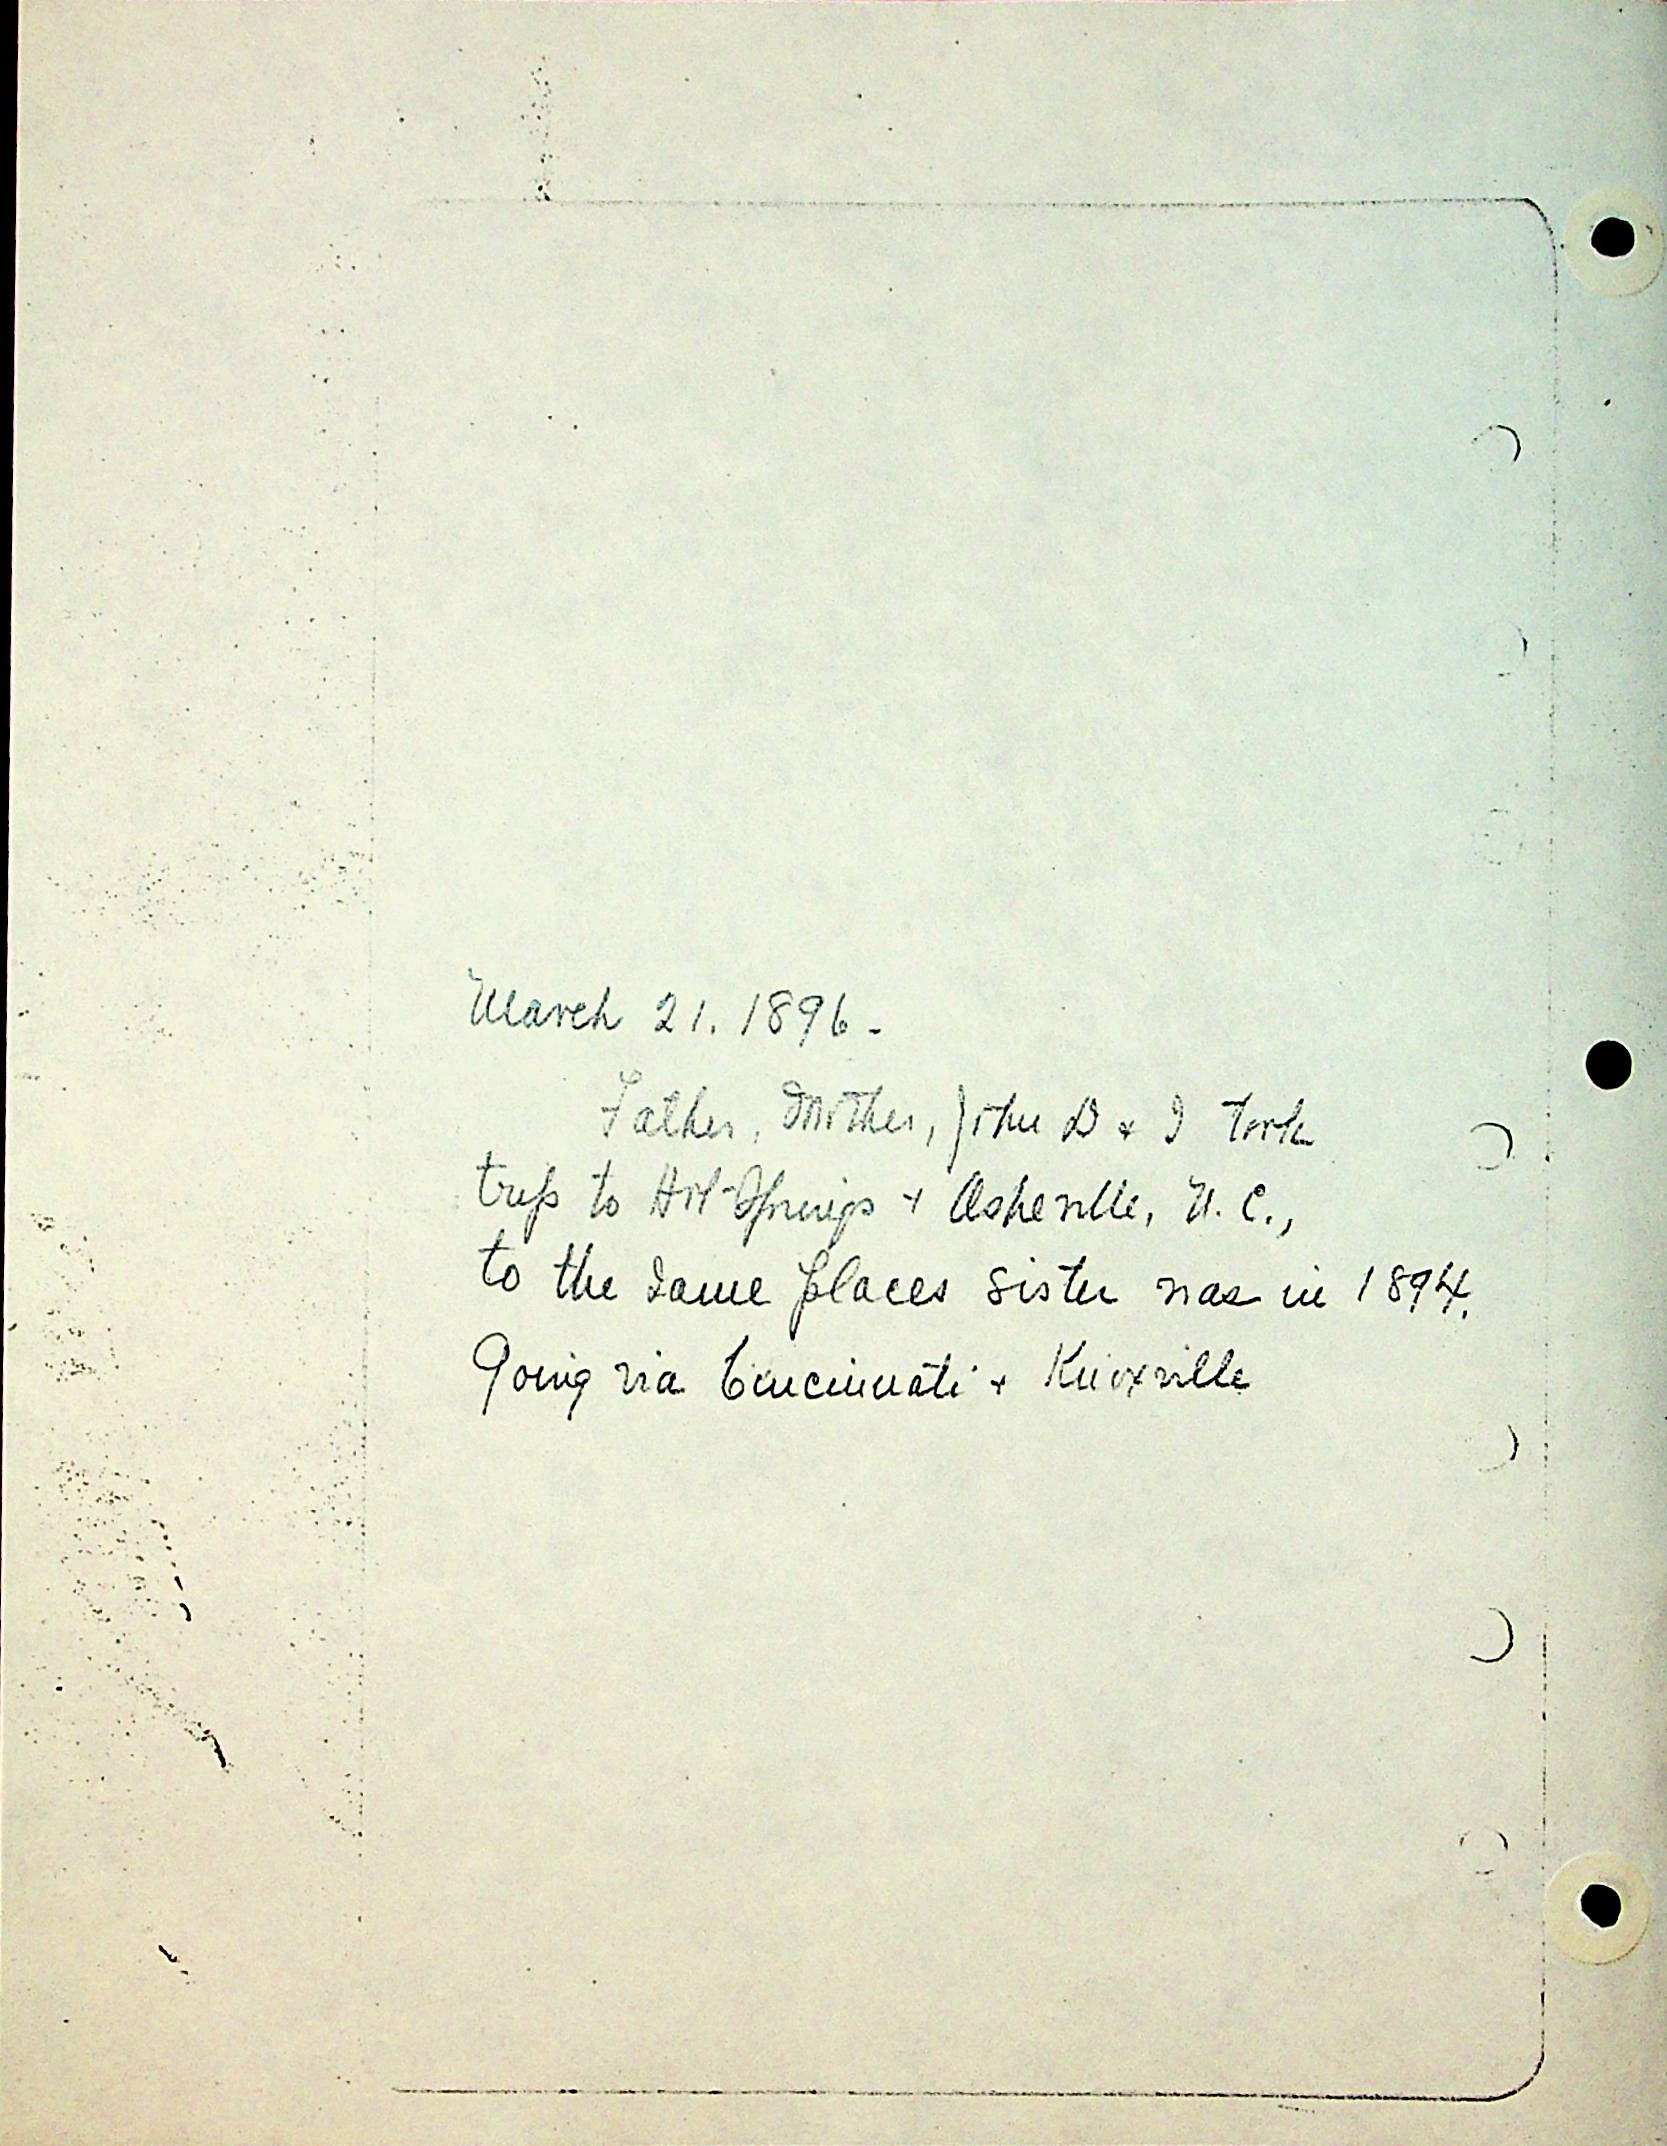 March 21. 1896 -
Father, Mother, John D + I took
trip to Hot Springs + Asheville, N. C.,
to the same places sister was in 1894.
Going via Cincinnati + Knoxville